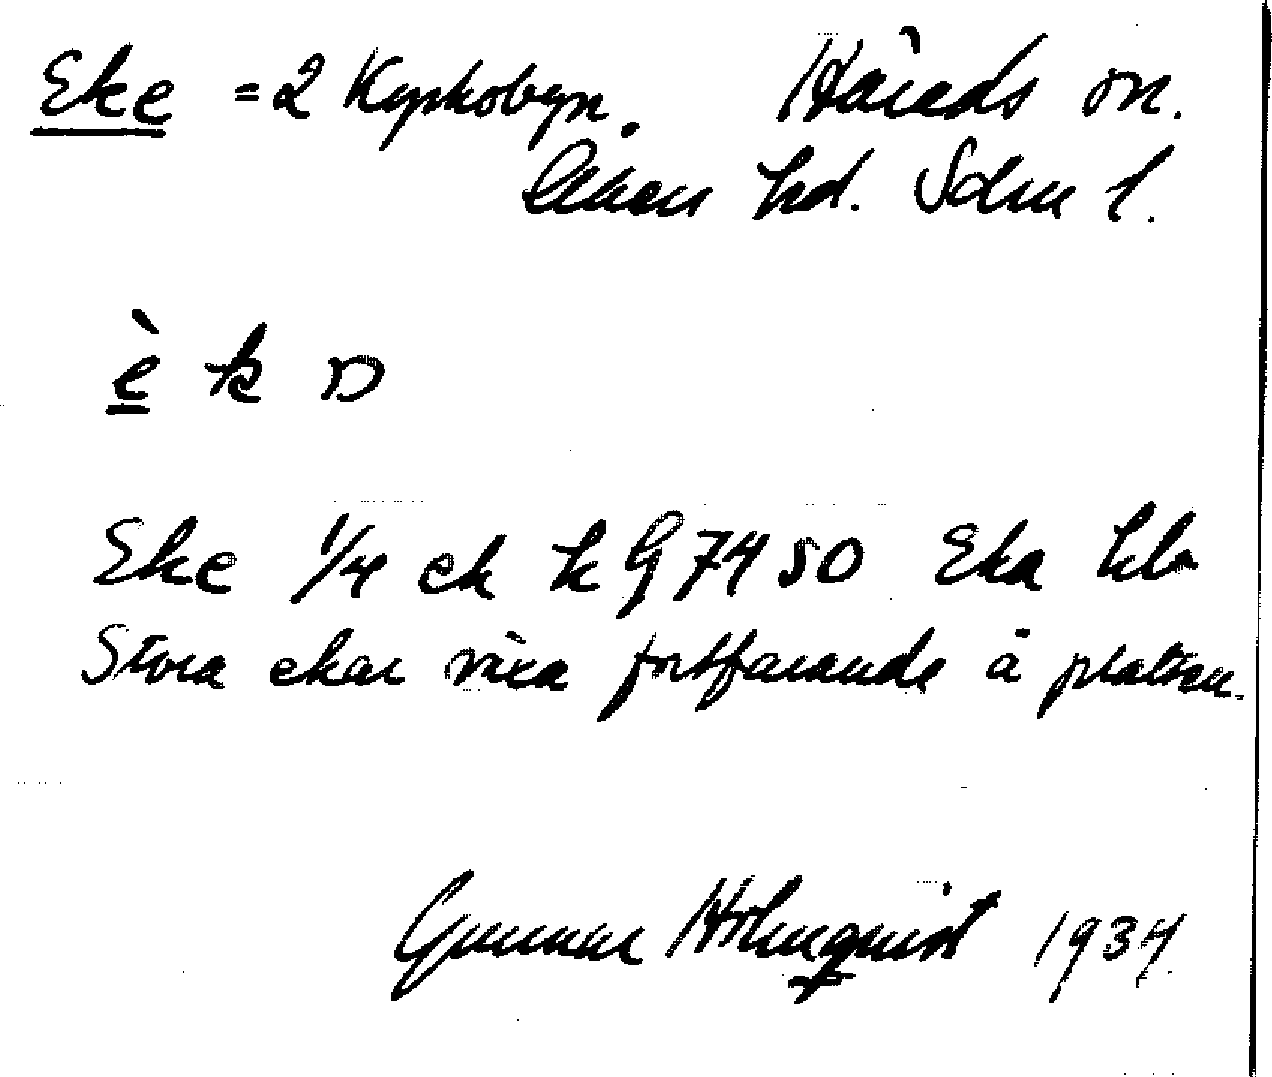 Eke = 2 Kyrkobyn. Häreds sn.
Åkers hd. Sdm l.
è k
Eke 1/4 ek k G 74 50 Eka kb
Stora ekar växa fortfarande å platsen.
Gunnar Holmquist 1934